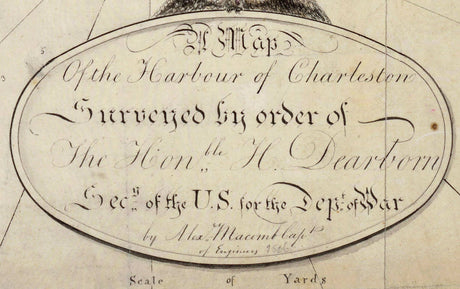 A Map
Of the Harbour of Charleston
Surveyed by order of
The Hon.ble H. Dearborn
Sec.y of the U.S. for the Dep.t of War
by Alex.r Macomb Cap.t
of Engineers
Scale of Yards